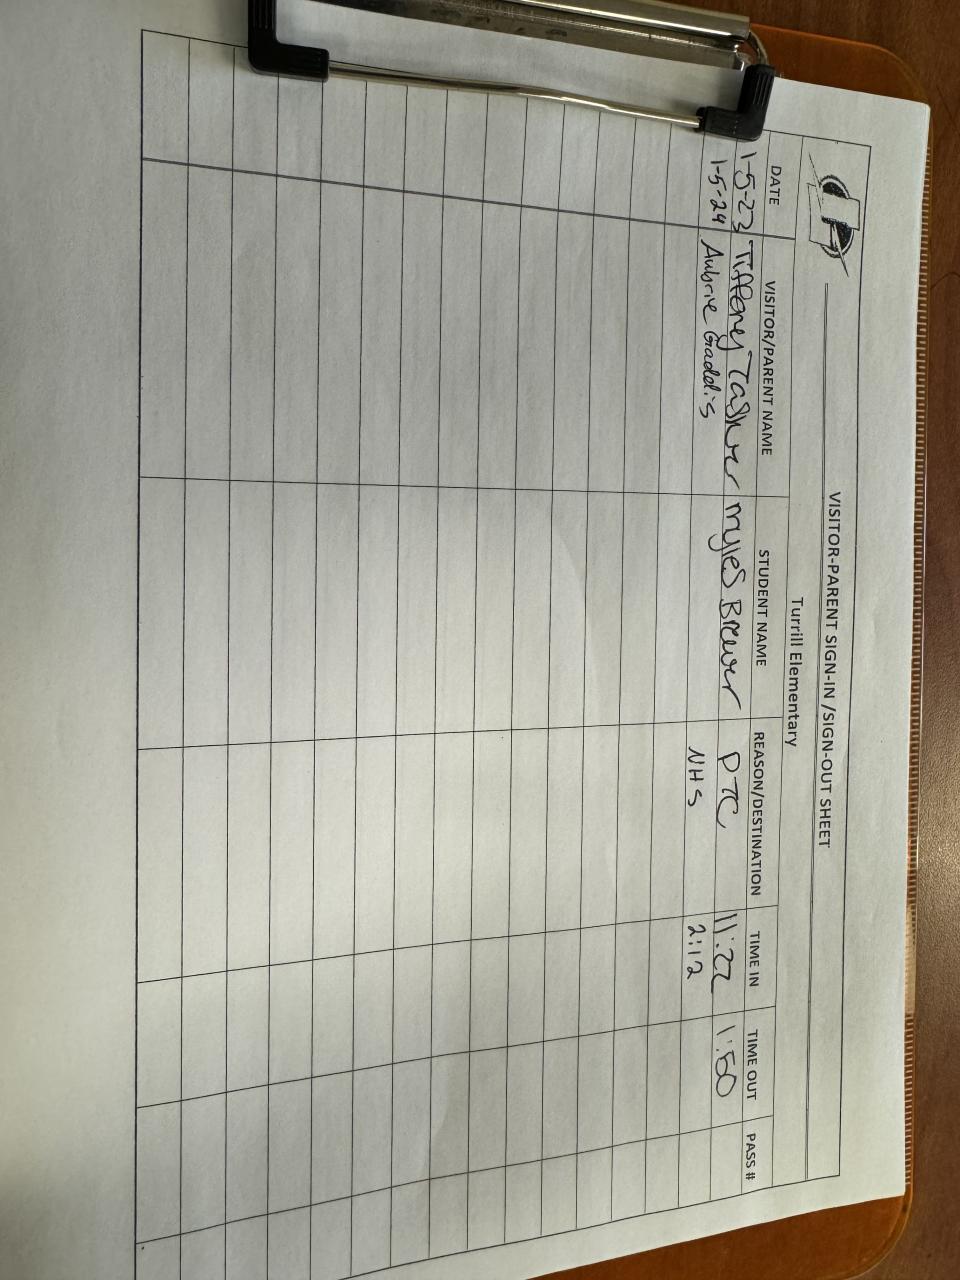 VISITOR-PARENT SIGN-IN /SIGN-OUT SHEET
Turrill Elementary
DATE VISITOR/PARENT NAME STUDENT NAME REASON/DESTINATION TIME IN TIME OUT PASS #
1-5-23 Tiffeney Tasker myles Brewer PTC 11:22 1:50
1-5-24 Aubrie Gaddis NHS 2:12